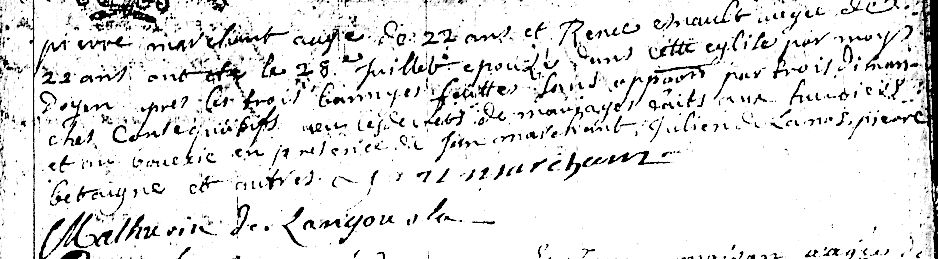 pierre marchant augé de 22 ans et Renee esnault augee de
22 ans ont ete le 28.e Juillet epouzé dans cette eglise par moy
doyen apres les trois bannyes faittes sans opp͞on͞ par trois diman
ches Consequutifs veu les decrets de mariages faits aux
et au en presence de Jan marchant, Julien de Lanos, pierre
betaigne et autres J marchant
Mathurin de Langou ola